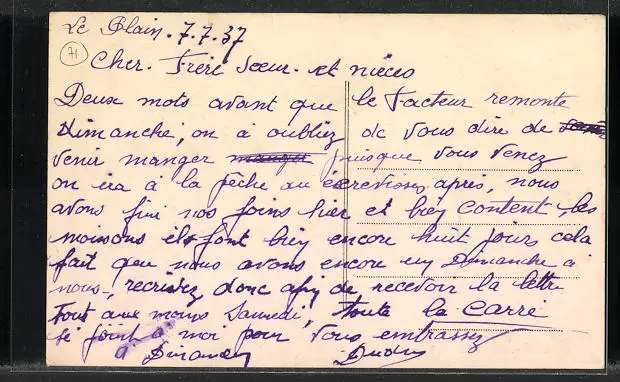 Le Plain. 7.7.37
71
Cher. Frère Sœur. et nièces
Deux mots avant que le Facteur remonte
dimanche, on à oubliez de vous dire de
venir manger puisque vous venez
on ira à la pêche au écrevisses, après, nous
avons fini nos foins hier et bien content, les
moissons ils font bien encore huit jours cela
fait que nous avons encore un Dimanche à
nous, recrivez donc afin de recevoir la lettre
tout aux moins Samedi, toute la Carré
se joint à moi pour vous embrassez
à Dimanche